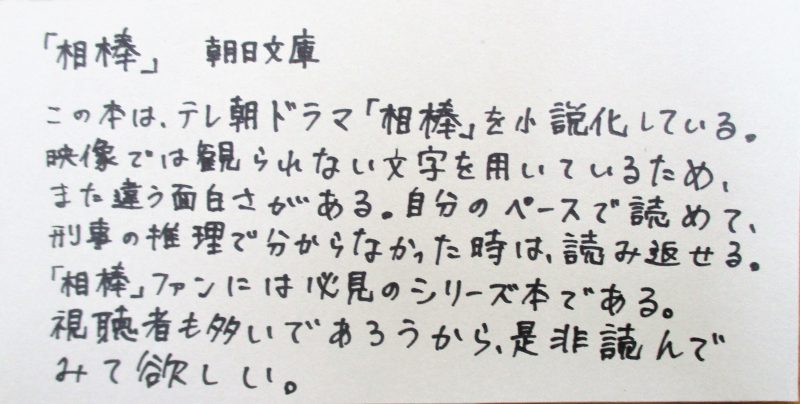 「相棒」 朝日文庫
この本は、テレ朝ドラマ「相棒」を小説化している。
映像では観られない文字を用いているため、
また違う面白さがある。自分のペースで読めて、
刑事の推理で分からなかった時は、読み返せる。
「相棒」ファンには必見のシリーズ本である。
視聴者も多いであろうから、是非読んで
みて欲しい。